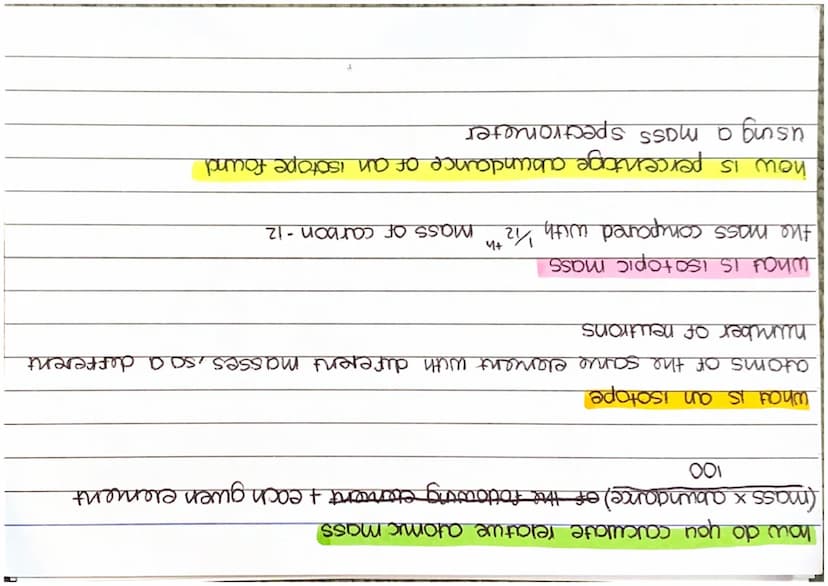 how do you calculate relative atomic mass
(mass x abundance) of the following element + each given element
100
what is an isotope
atoms of the same element with different masses, so a different
number of neutrons
what is isotopic mass
the mass compared with 1/12th mass of carbon-12
how is percentage abundance of an isotope found
using a mass spectrometer